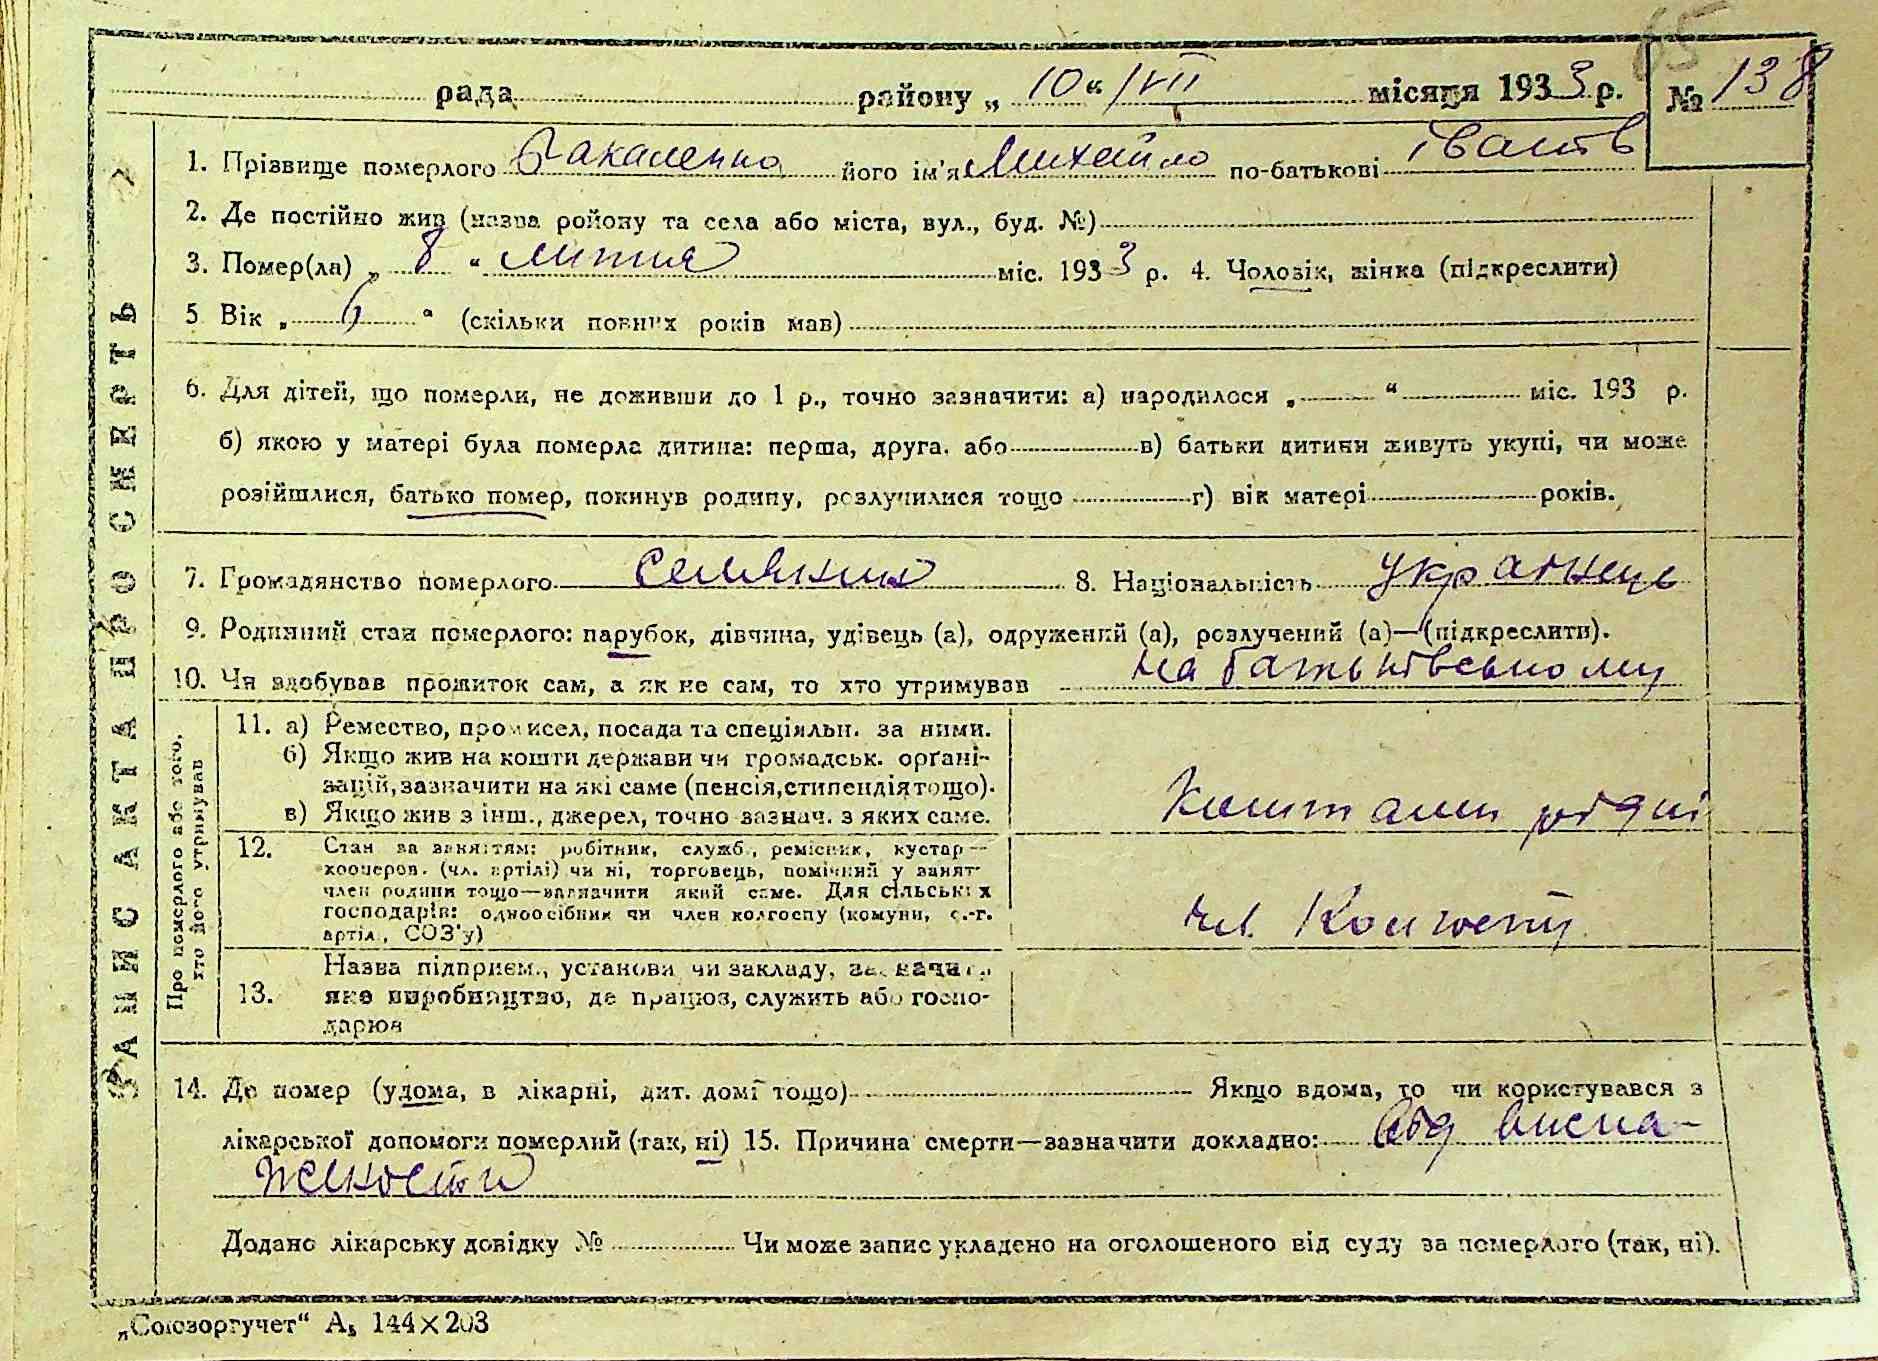 65
рада районy „ 10 “ /VII місяця 1933 р. № 138
1. Прізвище померлого Бакаленко його ім'я Михайло по-батькові Іванів
2. Де постійно жив (назва району та села або міста, вул., буд. №)
3. Помер(ла) „ 8 “ липня міс. 1933 р. 4. Чоловік, жінка (підкреслити)
5 Вік „ 6 “ (скільки повних років мав)
6. Для дітей, що померли, не доживши до 1 р., точно зазначити: а) народилося „ “ міс. 193 р.
б) якою у матері була померла дитина: перша, друга. або в) батьки дитини живуть укупі, чи може
розійшлися, батько помер, покинув родину, розлучилися тощо г) вік матері років.
7. Громадянство померлого 8. Національність українець
9. Родинний стан померлого: парубок, дівчина, удівець (а), одружений (а), розлучений (а)—(підкреслити).
10. Чи здобував прожиток сам, а як не сам, то хто утримував на батьківському
11. а) Ремество, промисел, посада та спеціяльн. за ними.
б) Якщо жив на кошти держави чи громадськ. орґані-
зацій, зазначити на які саме (пенсія, стипендія тощо).
в) Якщо жив з інш., джерел, точно зазнач. з яких саме.
коштами рідні
12. Стан за заняттям: робітник, служб., ремісник, кустар—
кооперов. (чл. артілі) чи ні, торговець, помічний у занят-
член родини тощо—зазначити який саме. Для сільських
господарів: одноосібник чи член колгоспу (комуни, с.-г.
артіл., СОЗ'у)
чл. Колгоспу
13. Назва підприєм., установи чи закладу, зазначити
яке виробництво, де працює, служить або госпо-
дарює
14. Де помер (удома, в лікарні, дит. домі тощо) Якщо вдома, то чи користувався з
лікарської допомоги померлий (так, ні) 15. Причина смерти—зазначити докладно: Від висна-
жености
Додано лікарську довідку № Чи може запис укладено на оголошеного від суду за померлого (так, ні).
„Союзоргучет“ А5 144×203
ЗАПИС АКТА ПРО СМЕРТЬ
Про померлого або того,
хто його утримував